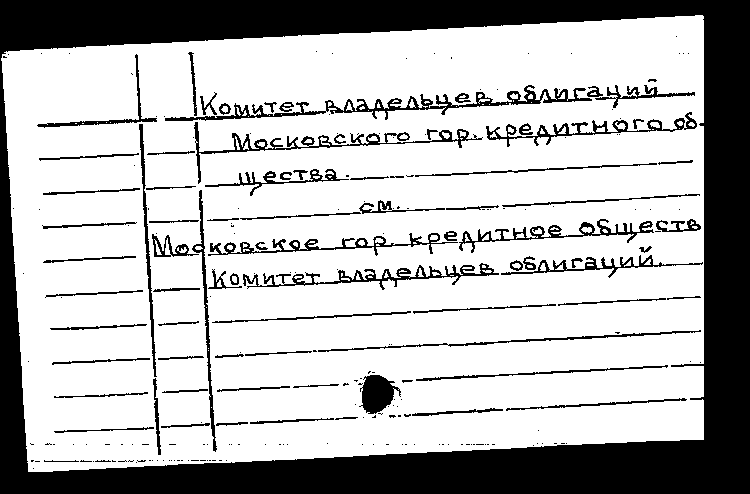 Комитет владельцев облигаций
Московского гор. кредитного об-
щества.
см.
Московское гор. кредитное обществ
Комитет владельцев облигаций.